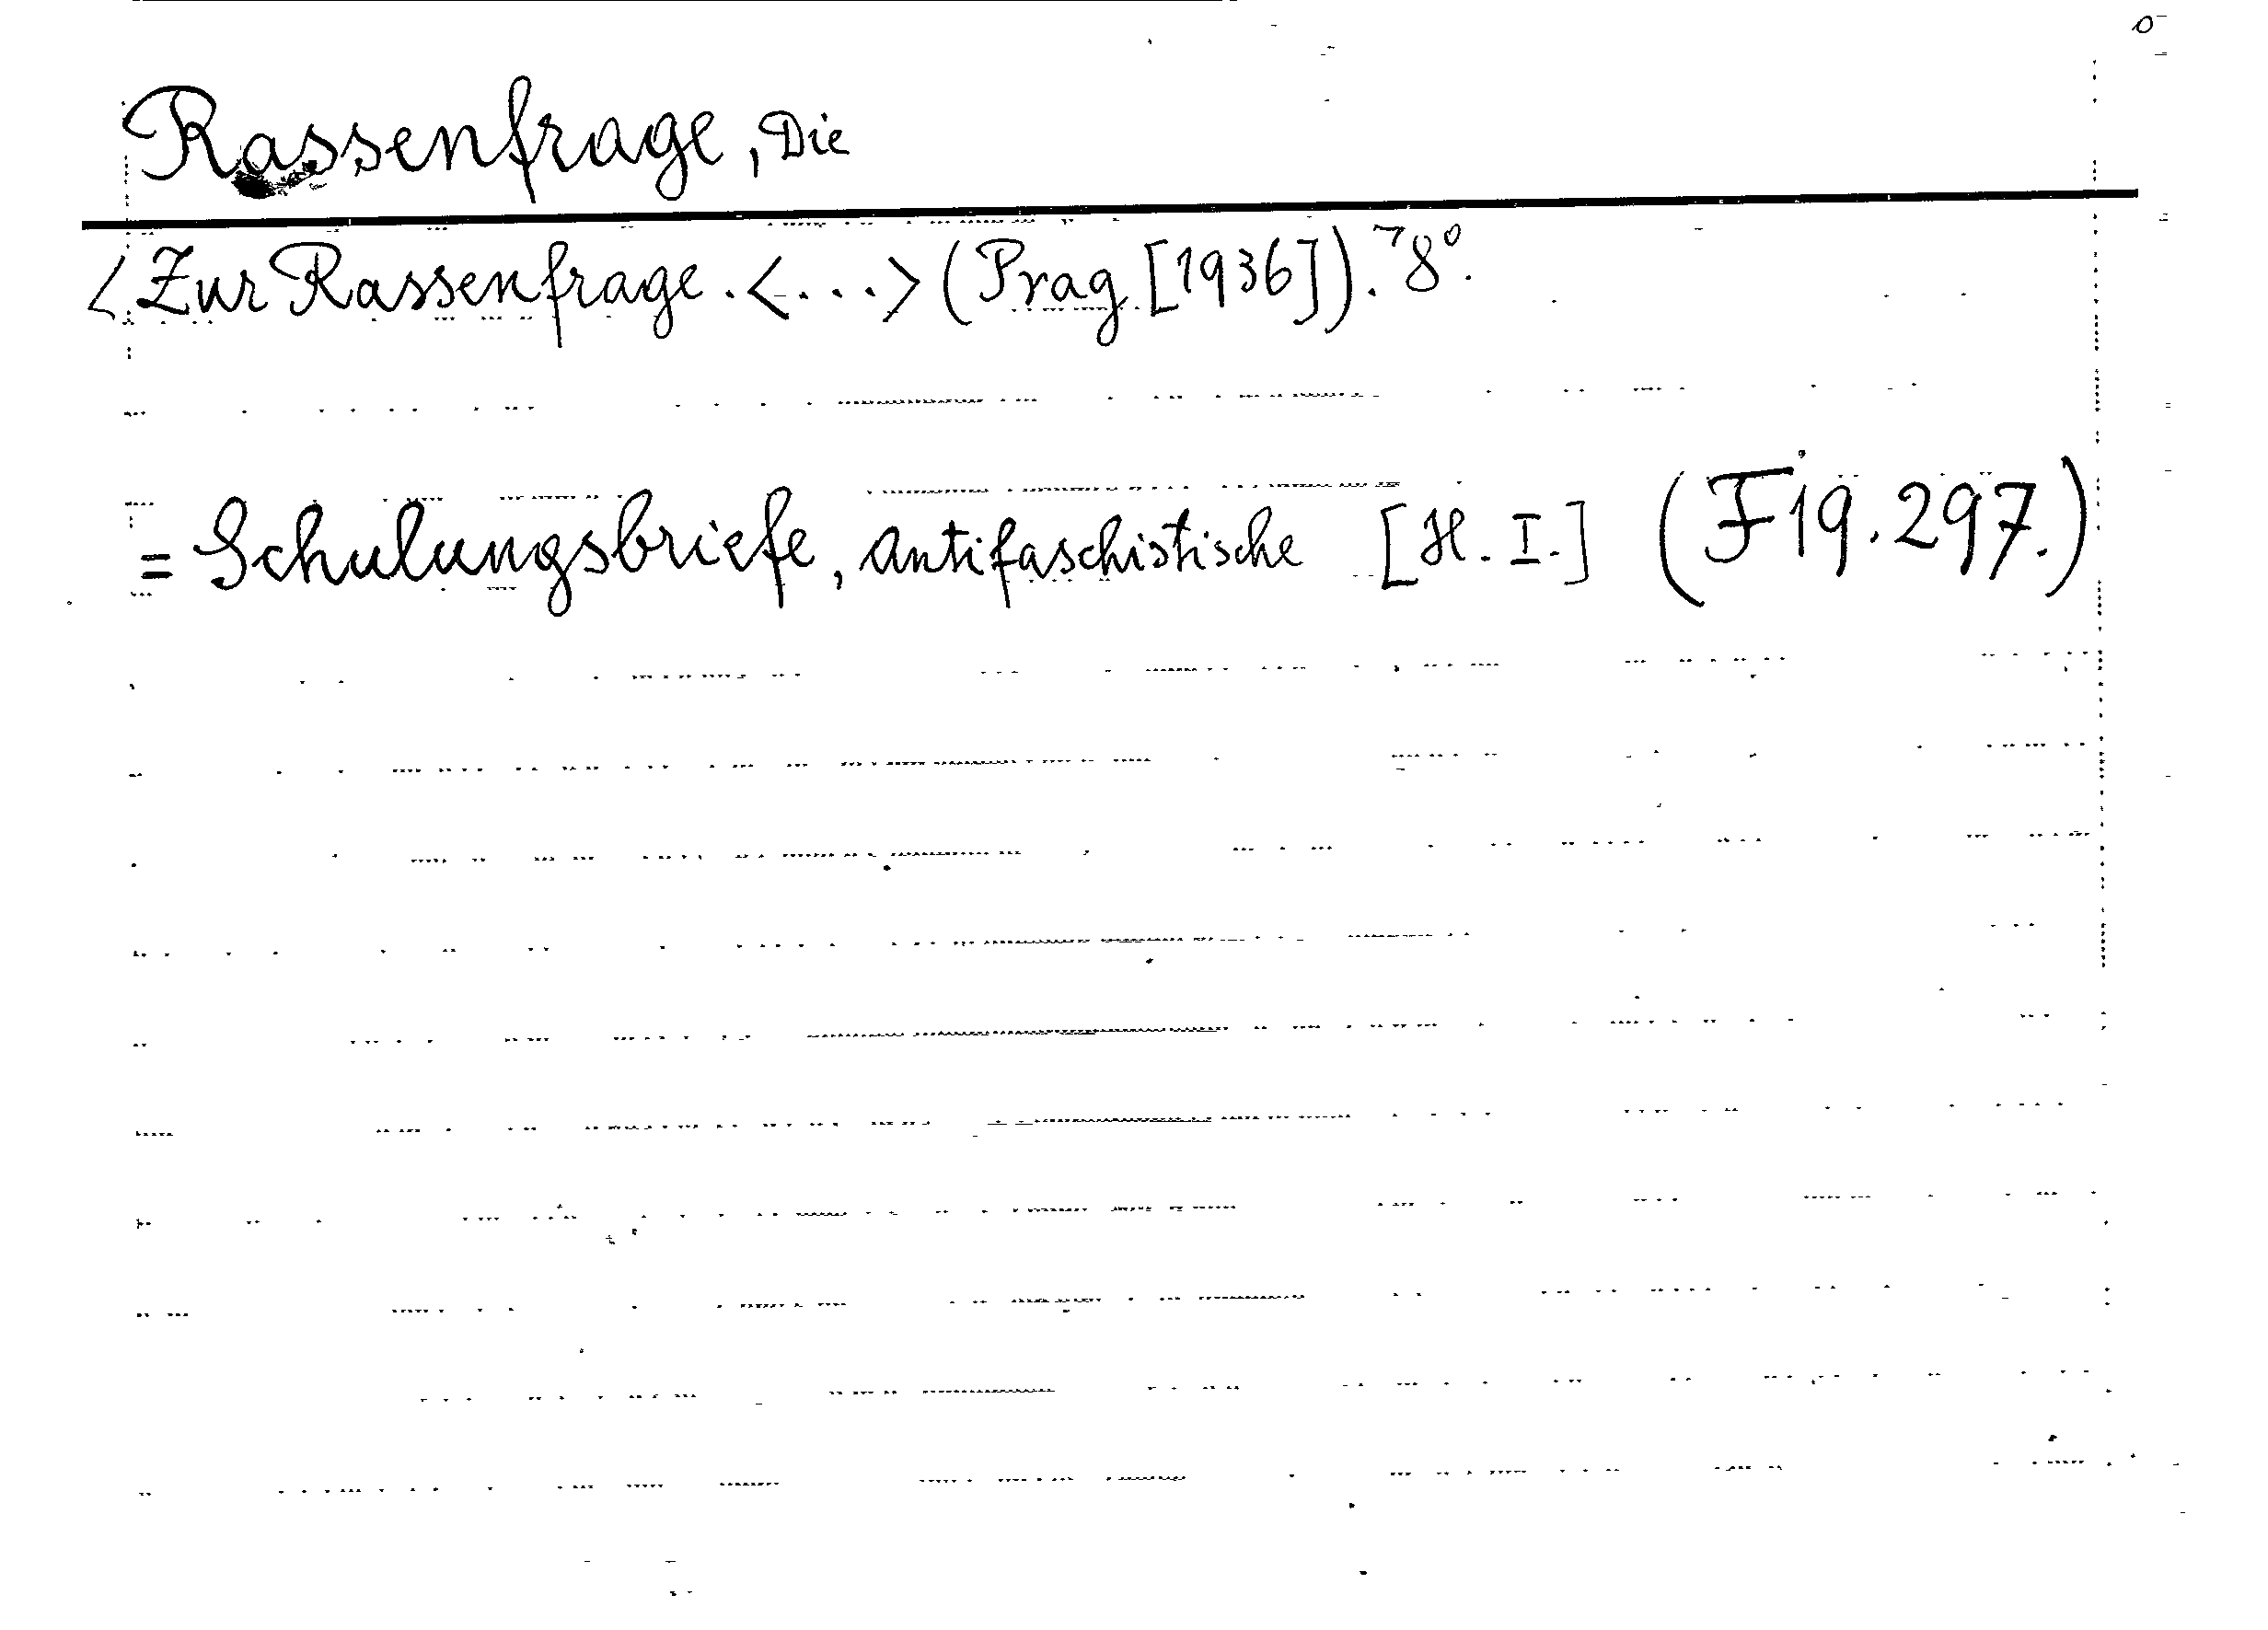 Rassenfrage, Die
⟨Zur Rassenfrage.<...> (Prag [1936]). 8°.
= Schulungsbriefe, antifaschistische [H. I.] (F 19.297.)